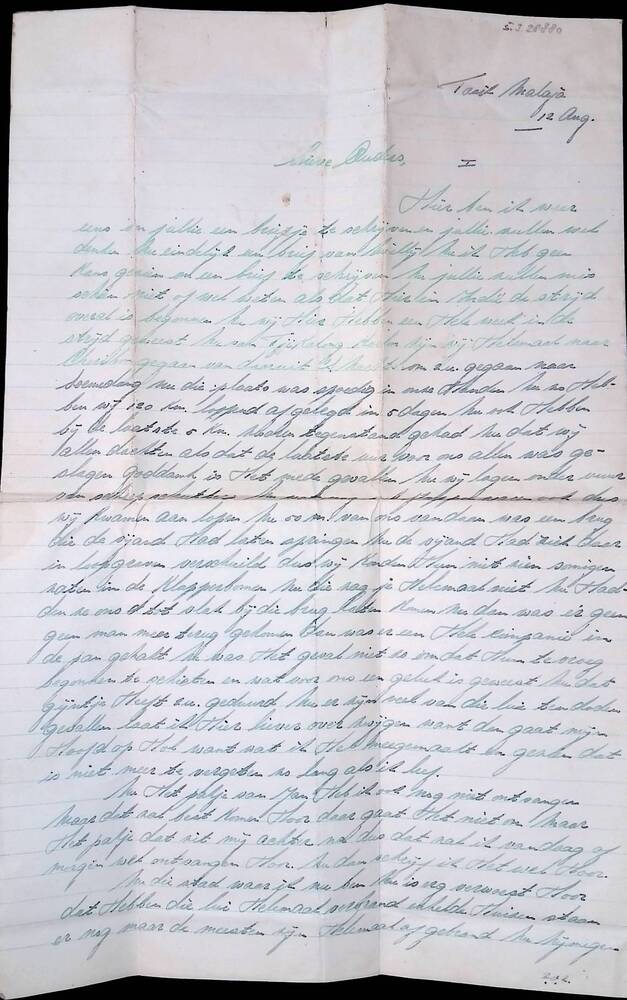 Tasik Malaja
12 Aug.
I
Lieve Ouders,
Hier ben ik weer
eens om jullie een briefje te schrijven en jullie zullen wel
denken he eindelijk een brief van
kans gezien om een brief te schrijven. Nu jullie zullen mis
schien niet of wel weten als dat Hier in Indië de strijd
overal is begonnen Nu wij Hier Hebben een Hele week in de
strijd geweest Nu van zijn wij Helemaal naar
Cheribon gegaan van daaruit om zu. gegaan naar
Soemedang nu die plaats was spoedig in onze Handen nu zo Heb-
ben wij 120 km. lopend afgelegd in 5 dagen Nu ook Hebben
bij de laatste 5 km. tegenstand gehad Nu dat wij
allen dachten als dat de laatste uur voor ons allen was ge-
slagen goddank is Het mede gevallen Nu wij lagen onder vuur
van scherpschutters dus
wij kwamen aan lopen Nu 50 m. van ons vandaan was een brug
die de vijand Had laten springen Nu de vijand Had zich daar
in loopgraven verschuild dus wij konden Hun niet zien somigen
zaten in de Klapperbomen Nu die zag je Helemaal niet Nu Had-
den ze ons tot vlak bij die brug laten komen Nu dan was er geen
geen man meer terug gekomen dan was er een Hele Compagnie in
de pan gehakt Nu was Het geval niet zo omdat Hun te vroeg
begonnen te schieten en wat voor ons een geluk is geweest Nu dat
gijntje Heeft zu. geduurd Nu er zijn veel van die lui ten doden
gevallen laat ik Hier liever over zwijgen want dan gaat mijn
Hoofd op Hol want wat ik Heb meegemaakt en gezien dat
is niet meer te vergeten zo lang als ik leef.
Nu Het pakje van Jan Heb ik ook nog niet ontvangen
maar dat zal best komen Hoor daar gaat Het niet om maar
Het pakje dat zit mij achter na dus dat zal ik vandaag of
morgen wel ontvangen Hoor. Nu dan schrijf ik Het wel Hoor.
Nu die stad waar ik nu ben Nu is erg verwoest Hoor
dat Hebben die lui Helemaal verbrand enkelde Huizen staan
er nog maar de meesten zijn Helemaal afgebrand Nu Nijmegen
z.o.z.